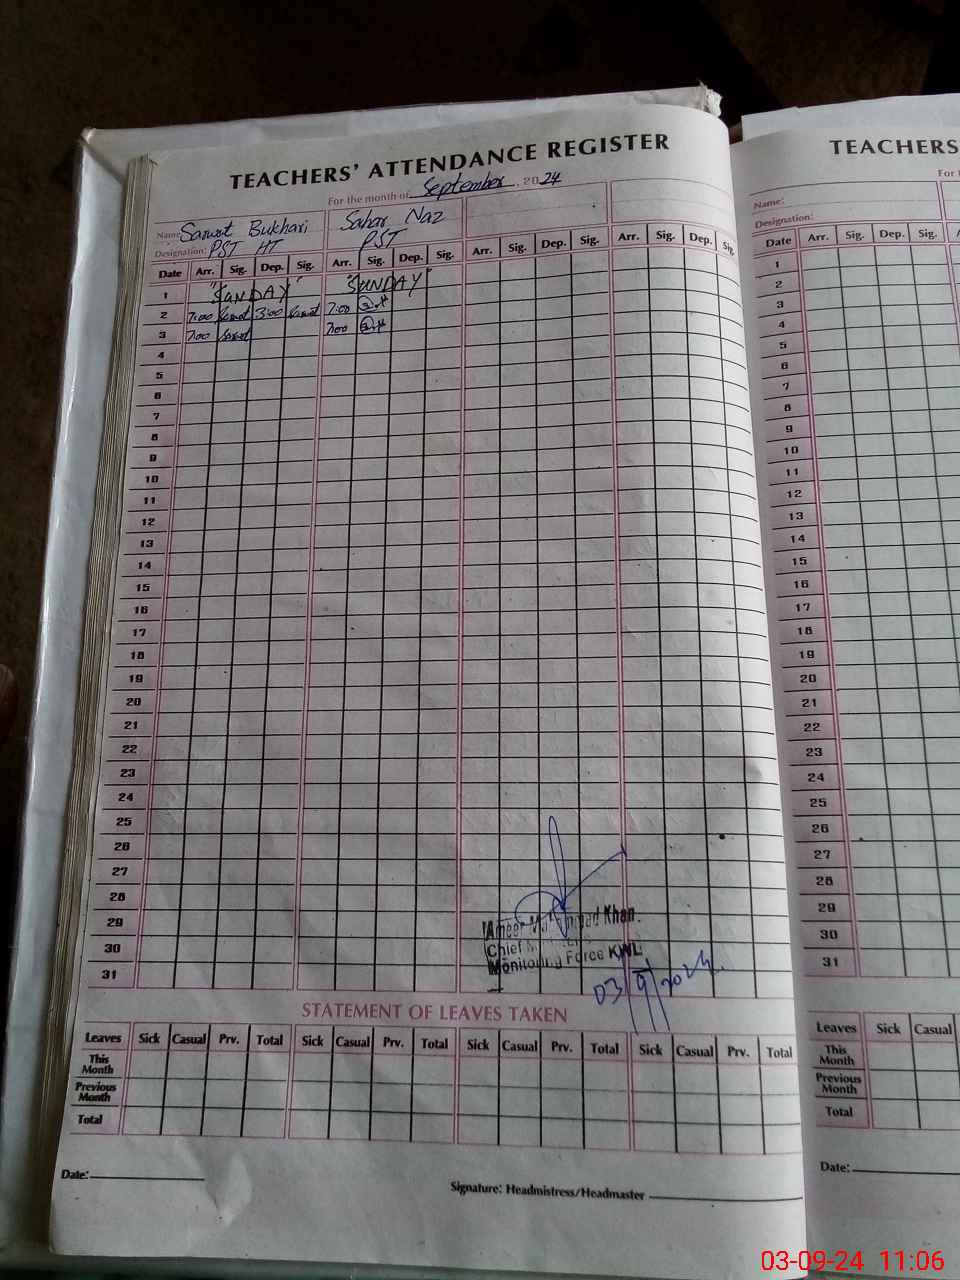 TEACHERS' ATTENDANCE REGISTER
For the month of September, 2024
Name: Sarwat Bukhari Sahar Naz
Designation: PST HT PST
Date Arr. Sig. Dep. Sig. Arr. Sig. Dep. Sig. Arr. Sig. Dep. Sig. Arr. Sig. Dep. Sig.
1 "SUNDAY" "SUNDAY"
2 7:00 Sarwat 3:00 Sarwat 7:00
3 7:00 Sarwat 7:00
4
5
6
7
8
9
10
11
12
13
14
15
16
17
18
19
20
21
22
23
24
25
26
27
28
29
30
31
Ameer Muhammad Khan
Chief
Monitoring Force KWL
03/9/2024
STATEMENT OF LEAVES TAKEN
Leaves Sick Casual Prv. Total Sick Casual Prv. Total Sick Casual Prv. Total Sick Casual Prv. Total
This Month
Previous Month
Total
Date:
Signature: Headmistress/Headmaster
TEACHERS
For t
Name:
Designation:
Date Arr. Sig. Dep. Sig.
1
2
3
4
5
6
7
8
9
10
11
12
13
14
15
16
17
18
19
20
21
22
23
24
25
26
27
28
29
30
31
Leaves Sick Casual
This Month
Previous Month
Total
Date:
03-09-24 11:06